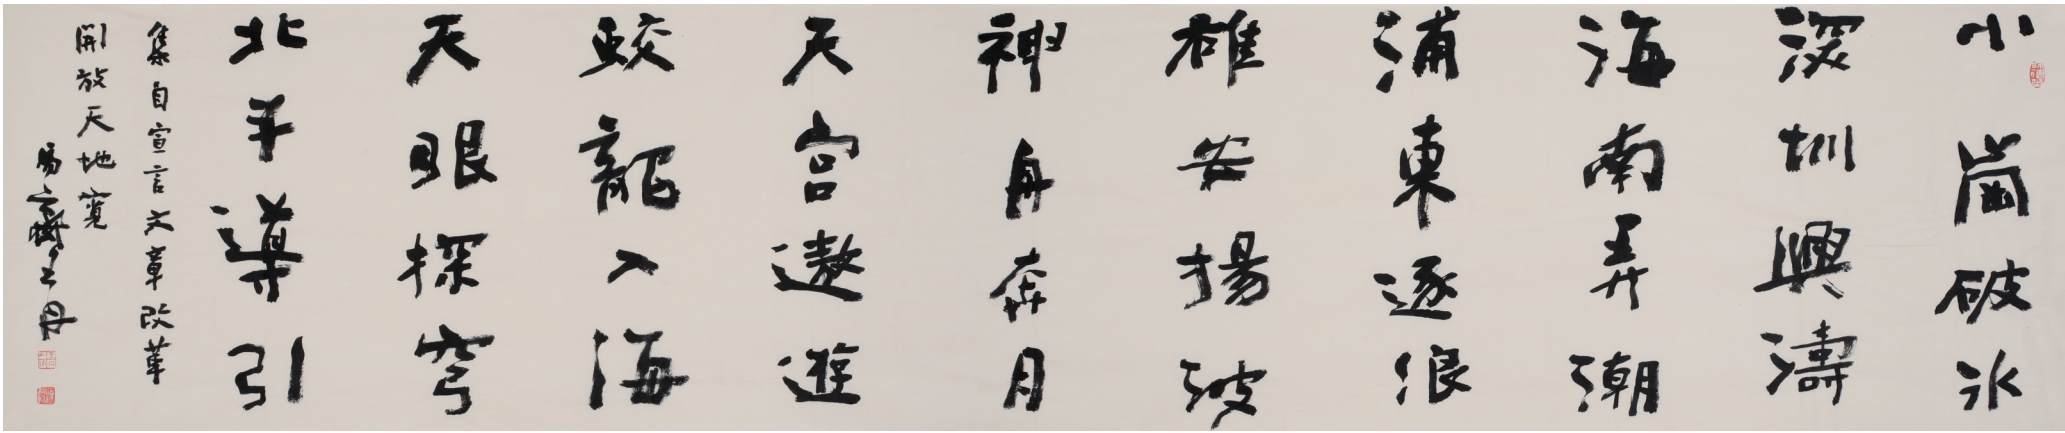 小崗破冰
深圳興濤
海南弄潮
浦東逐浪
雄安揚波
神舟奔月
天宫遨遊
蛟龍入海
天眼探穹
北斗導引
集自宣言文章改革
開放天地寬
易齋王丹